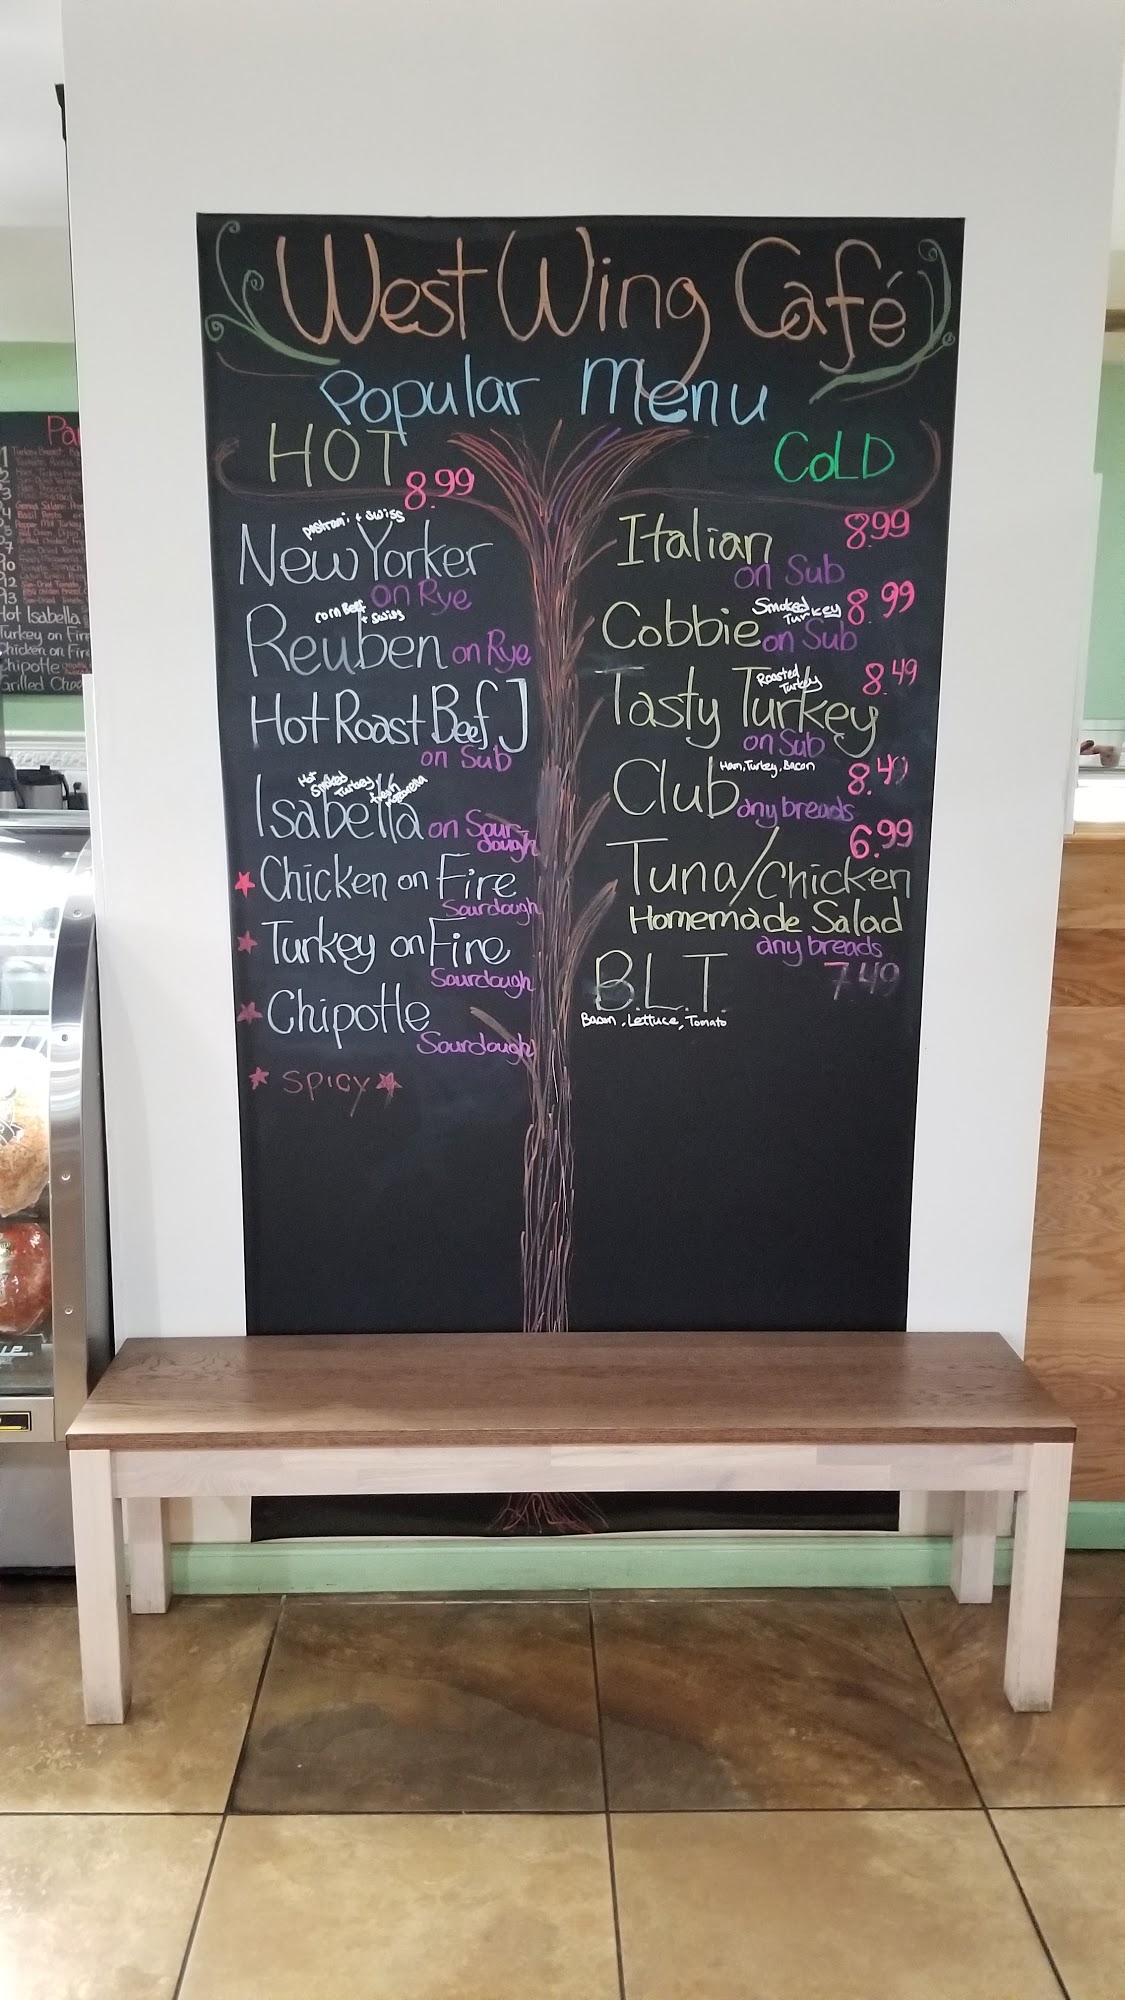 West Wing Café
Popular Menu
HOT 8.99
pastrami + swiss
New Yorker
on Rye
corn Beef
+ swiss
Reuben on Rye
Hot Roast Beef
on Sub
Hot
Smoked
Turkey
fresh
Mozzarella
Isabella on Sour-
dough
Chicken on Fire
Sourdough
Turkey on Fire
Sourdough
Chipotle
Sourdough
SPICY
COLD
Italian 8.99
on Sub
Smoked
Turkey
Cobbie on Sub 8.99
Roasted
Turkey
Tasty Turkey 8.49
on Sub
Ham, Turkey, Bacon
Club any breads 8.49
6.99
Tuna/Chicken
Homemade Salad
any breads
B.L.T. 7.49
Bacon, Lettuce, Tomato
Hot Isabella
Turkey on Fire
Chicken on Fire
Chipotle
Grilled